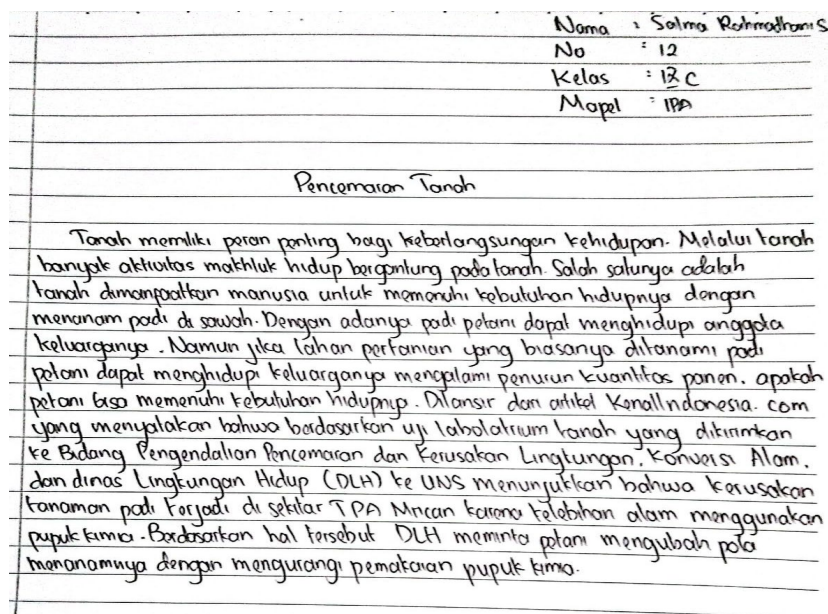 Nama : Salma Rahmadhani S
No : 12
Kelas : C
Mapel : IPA
Pencemaran Tanah
Tanah memiliki peran penting bagi keberlangsungan kehidupan. Melalui tanah
banyak aktivitas makhluk hidup bergantung pada tanah. Salah satunya adalah
tanah dimanpaatkan manusia untuk memenuhi kebutuhan hidupnya dengan
menanam padi di sawah. Dengan adanya padi petani dapat menghidupi anggota
keluarganya. Namun jika lahan pertanian yang biasanya ditanami padi
petani dapat menghidupi keluarganya mengalami penurun kuantitas panen. apakah
petani bisa memenuhi kebutuhan hidupnya. Dilansir dari artikel KanalIndonesia.com
yang menyatakan bahwa berdasarkan uji labolatrium tanah yang dikirimkan
ke Bidang Pengendalian Pencemaran dan Kerusakan Lingkungan, Konversi Alam,
dan dinas Lingkungan Hidup (DLH) ke UNS menunjukkan bahwa kerusakan
tanaman padi terjadi di sekitar TPA Mrican karena kelebihan alam menggunakan
pupuk kimia. Berdasarkan hal tersebut DLH meminta petani mengubah pola
menanamnya dengan mengurangi pemakaian pupuk kimia.